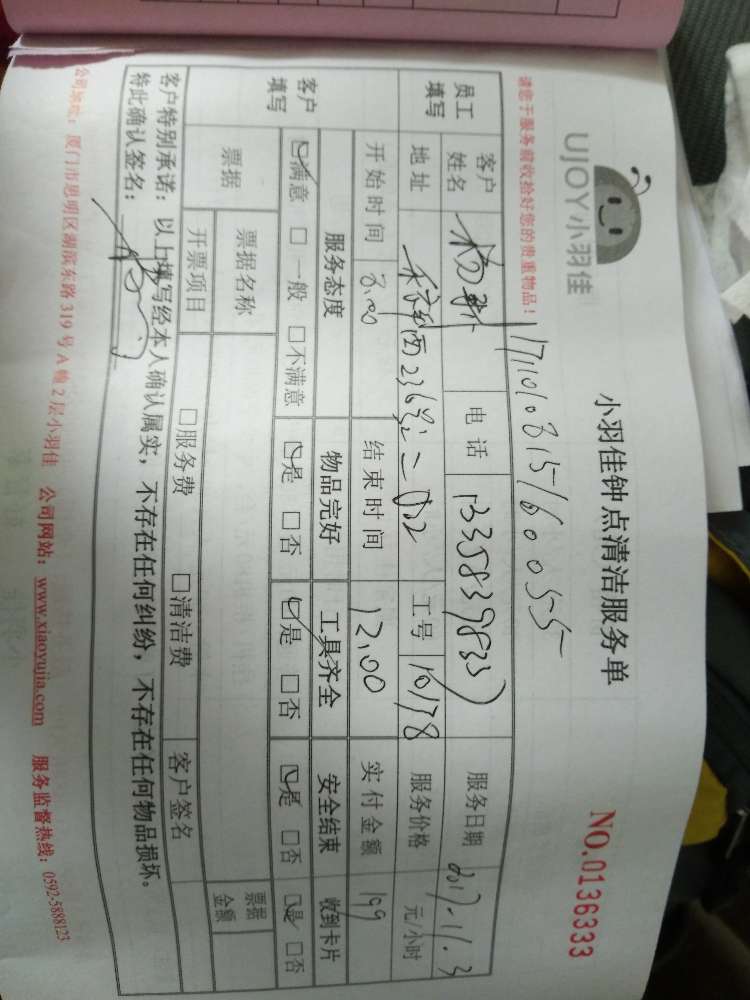 UJOY小羽佳
小羽佳钟点清洁服务单
NO.0136333
请您于服务前收拾好您的贵重物品!
171010815160055
员工填写 客户姓名 电话 服务日期 2017.11.3
地址 工号 10178 服务价格 元/小时
客户填写 开始时间 8.00 结束时间 12.00 实付金额 199
服务态度 物品完好 工具齐全 安全结束 收到卡片
☑满意 □一般 □不满意 ☑是 □否 ☑是 □否 ☑是 □否 ☑是 □否
票据 票据名称 □服务费 □清洁费 票据金额
开票项目 客户签名
客户特别承诺:以上填写经本人确认属实,不存在任何纠纷,不存在任何物品损坏。
特此确认签名:
公司地址:厦门市思明区湖滨东路319号A幢2层小羽佳 公司网站:www.xiaoyujia.com 服务监督热线:0592-5888123